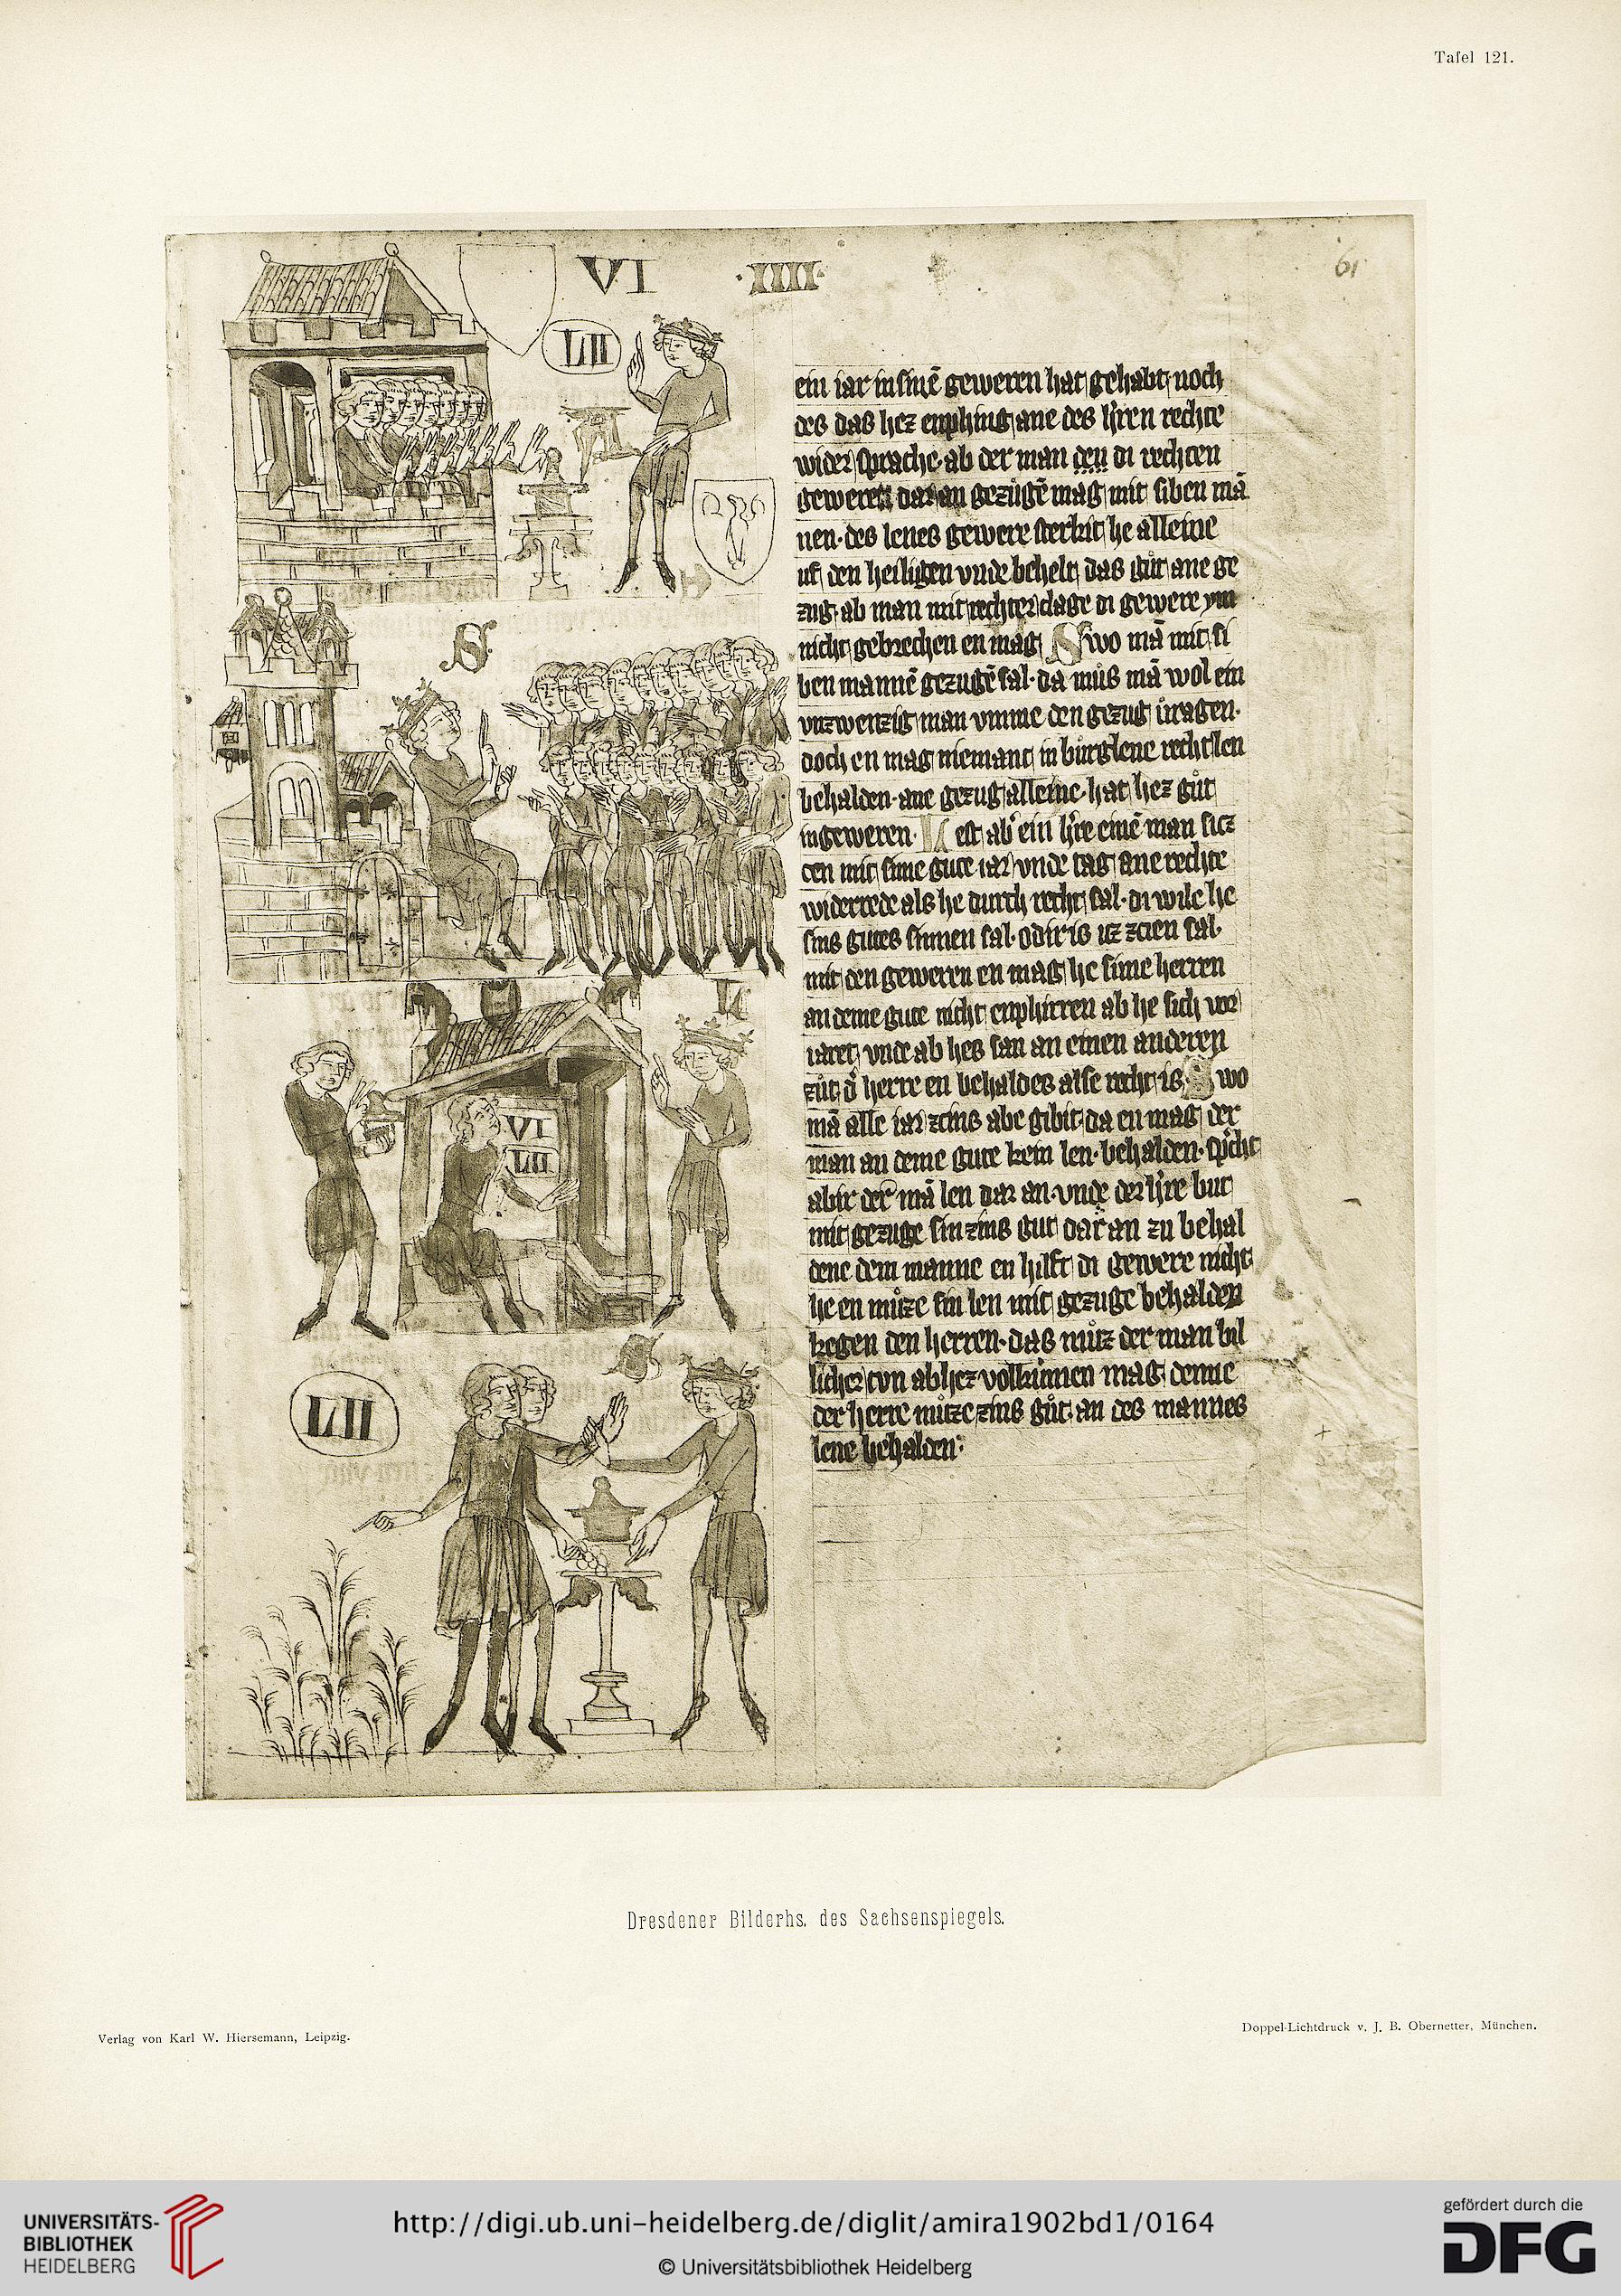 Tafel 121.
61
VI ·IIII·
LII
ein iar in sinē geweren hat gehabt noch
des das hez enphing ane des h̕ren rechte
wider sprache· ab der man den di rechten
geweren dar an gezůgē mag mit siben mā
nen· des lenes gewere sterkit he alleine
uf den heiligen vnde behelt das gůt ane ge
zug· ab man mit rechter clage di gewere ym
nicht gebrechen en mag Swo mā mit si
ben mannē gezugē sal· da můs mā wol ein
vnzwenzig man vmme den gezug vragen·
doch en mag niemant in burglene recht len
behalden· ane gezug alleine· hat hez gůt
ingeweren· L est ab ein h̕re einē man sicz
cen mit sime gute iar vnde tag ane rechte
widerrede als he durch recht sal· di wile he
sins gutes sinnen sal· odir is uz zcien sal·
mit den geweren en mag he sime herren
an deme gute nicht enphirren ab he sich vor
iaret vnde ab hes san an einen anderen
zůt d̕ herre en behaldes alse recht is· Swo
mā alle iar zcins abe gibit· da en mag der
man an deme gute kein len· behalden· sp̕cht
abir der mā len dar an· vnde der h̕re but
mit gezuge sin zins gut dar an zu behal
dene dem manne en hilft di gewere nicht
he en můze sin len mit gezuge behalden
kegen den herren· das můz der man bil
licher tvn ab hez volkumen mag denne
der herre můze zins gůt an des mannes
lene behalden·
S
L
VI
LII
S
LII
Dresdener Bilderhs. des Sachsenspiegels.
Verlag von Karl W. Hiersemann, Leipzig.
Doppel-Lichtdruck v. J. B. Obernetter, München.
UNIVERSITÄTS-
BIBLIOTHEK
HEIDELBERG
http://digi.ub.uni-heidelberg.de/diglit/amira1902bd1/0164
© Universitätsbibliothek Heidelberg
gefördert durch die
DFG